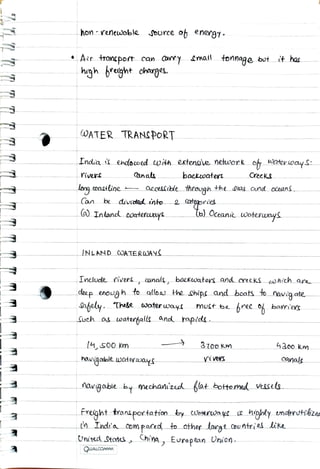 non-renewable source of energy.
• Air transport can carry small tonnage but it has
high freight charges.
WATER TRANSPORT
India is endowed with extensive network of waterways:
rivers canals backwaters creeks
long coastline ← accessible through the seas and oceans.
Can be divided into 2 categories
(a) Inland waterways (b) Oceanic waterways
INLAND WATERWAYS
Include rivers, canals, backwaters and creeks which are
deep enough to allow the ships and boats to navigate
safely. These waterways must be free of barriers
such as waterfalls and rapids.
14,500 km → 3700 km 4300 km
navigable waterways rivers canals
navigable by mechanized flat bottomed vessels.
Freight transportation by waterways is highly underutilized
in India compared to other large countries like
United States, China, European Union.